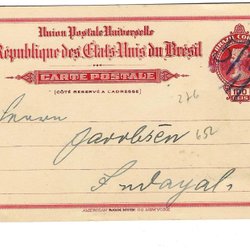 Union Postale Universelle
République des États-Unis du Brésil
CARTE POSTALE
(CÔTÉ RÉSERVÉ A L'ADRESSE)
276
Herrn
Jacobsen 652
Indayal
AMERICAN BANK NOTE CO. NEW YORK